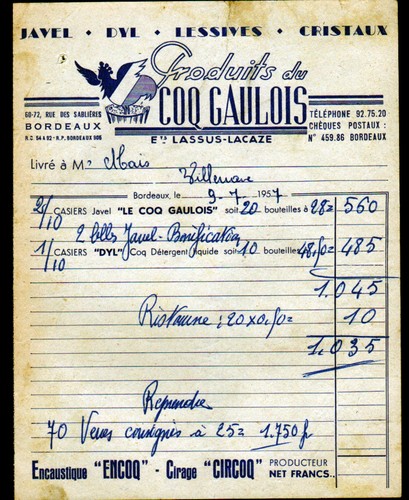 JAVEL • DYL • LESSIVES • CRISTAUX
Produits du
COQ GAULOIS
Ets LASSUS-LACAZE
60-72, RUE DES SABLIÈRES
BORDEAUX
R.C. 54 A 92 - R.P. BORDEAUX 905
TÉLÉPHONE 92.75.20
CHÈQUES POSTAUX :
N° 459.86 BORDEAUX
Livré à Mr Mais
Villenave
Bordeaux, le 9-7-1957
2/10 CASIERS Javel "LE COQ GAULOIS" soit 20 bouteilles à 28= 560
2 bells Javel-Bonification
1/10 CASIERS "DYL" Coq Détergent liquide soit 10 bouteilles 48,50= 485
1.045
Ristourne : 20x0,50= 10
1.035
Reprendre
70 Verres consignés à 25= 1.750 f
Encaustique "ENCOQ" - Cirage "CIRCOQ" PRODUCTEUR
NET FRANCS..